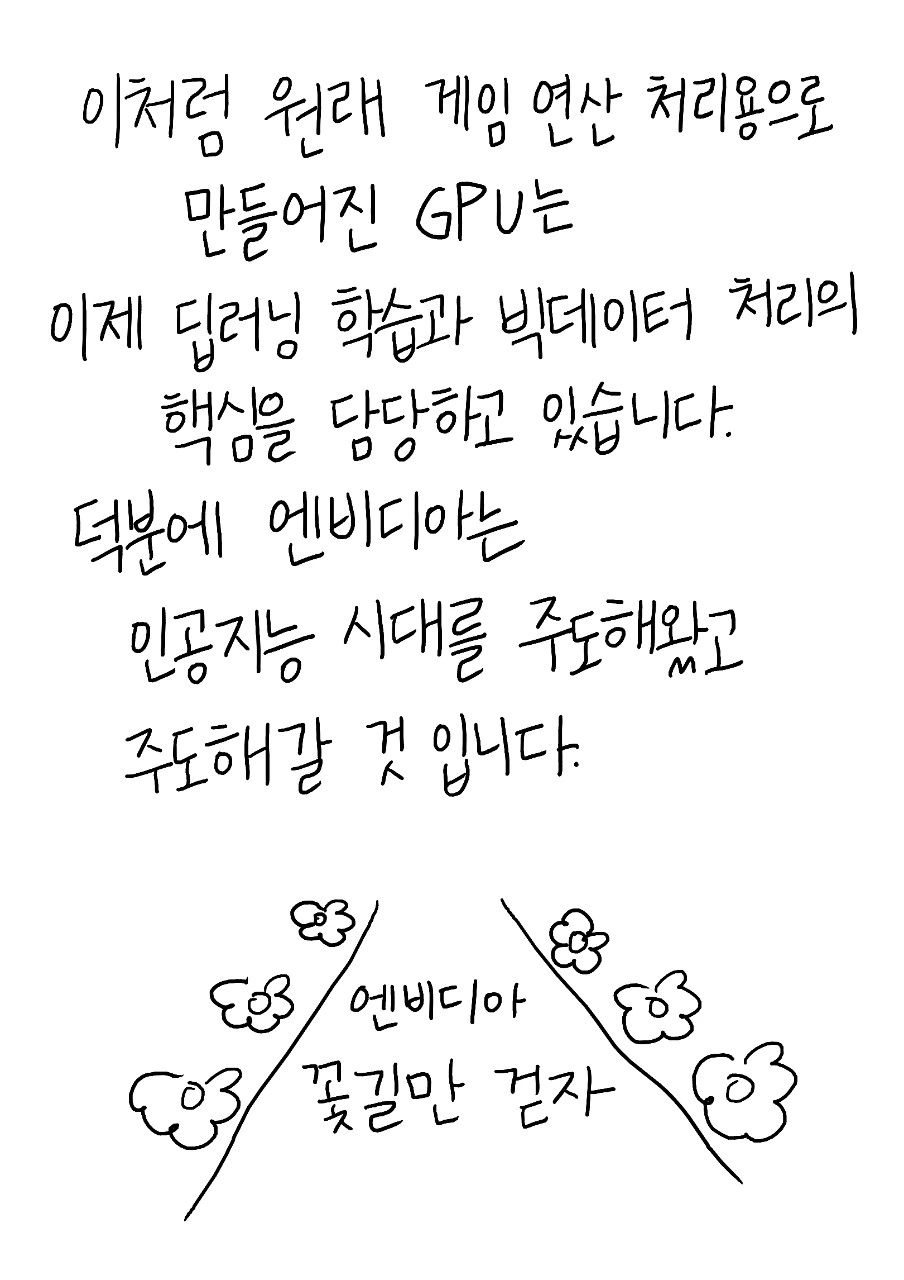 이처럼 원래 게임 연산 처리용으로
만들어진 GPU는
이제 딥러닝 학습과 빅데이터 처리의
핵심을 담당하고 있습니다.
덕분에 엔비디아는
인공지능 시대를 주도해왔고
주도해갈 것 입니다.
엔비디아
꽃길만 걷자